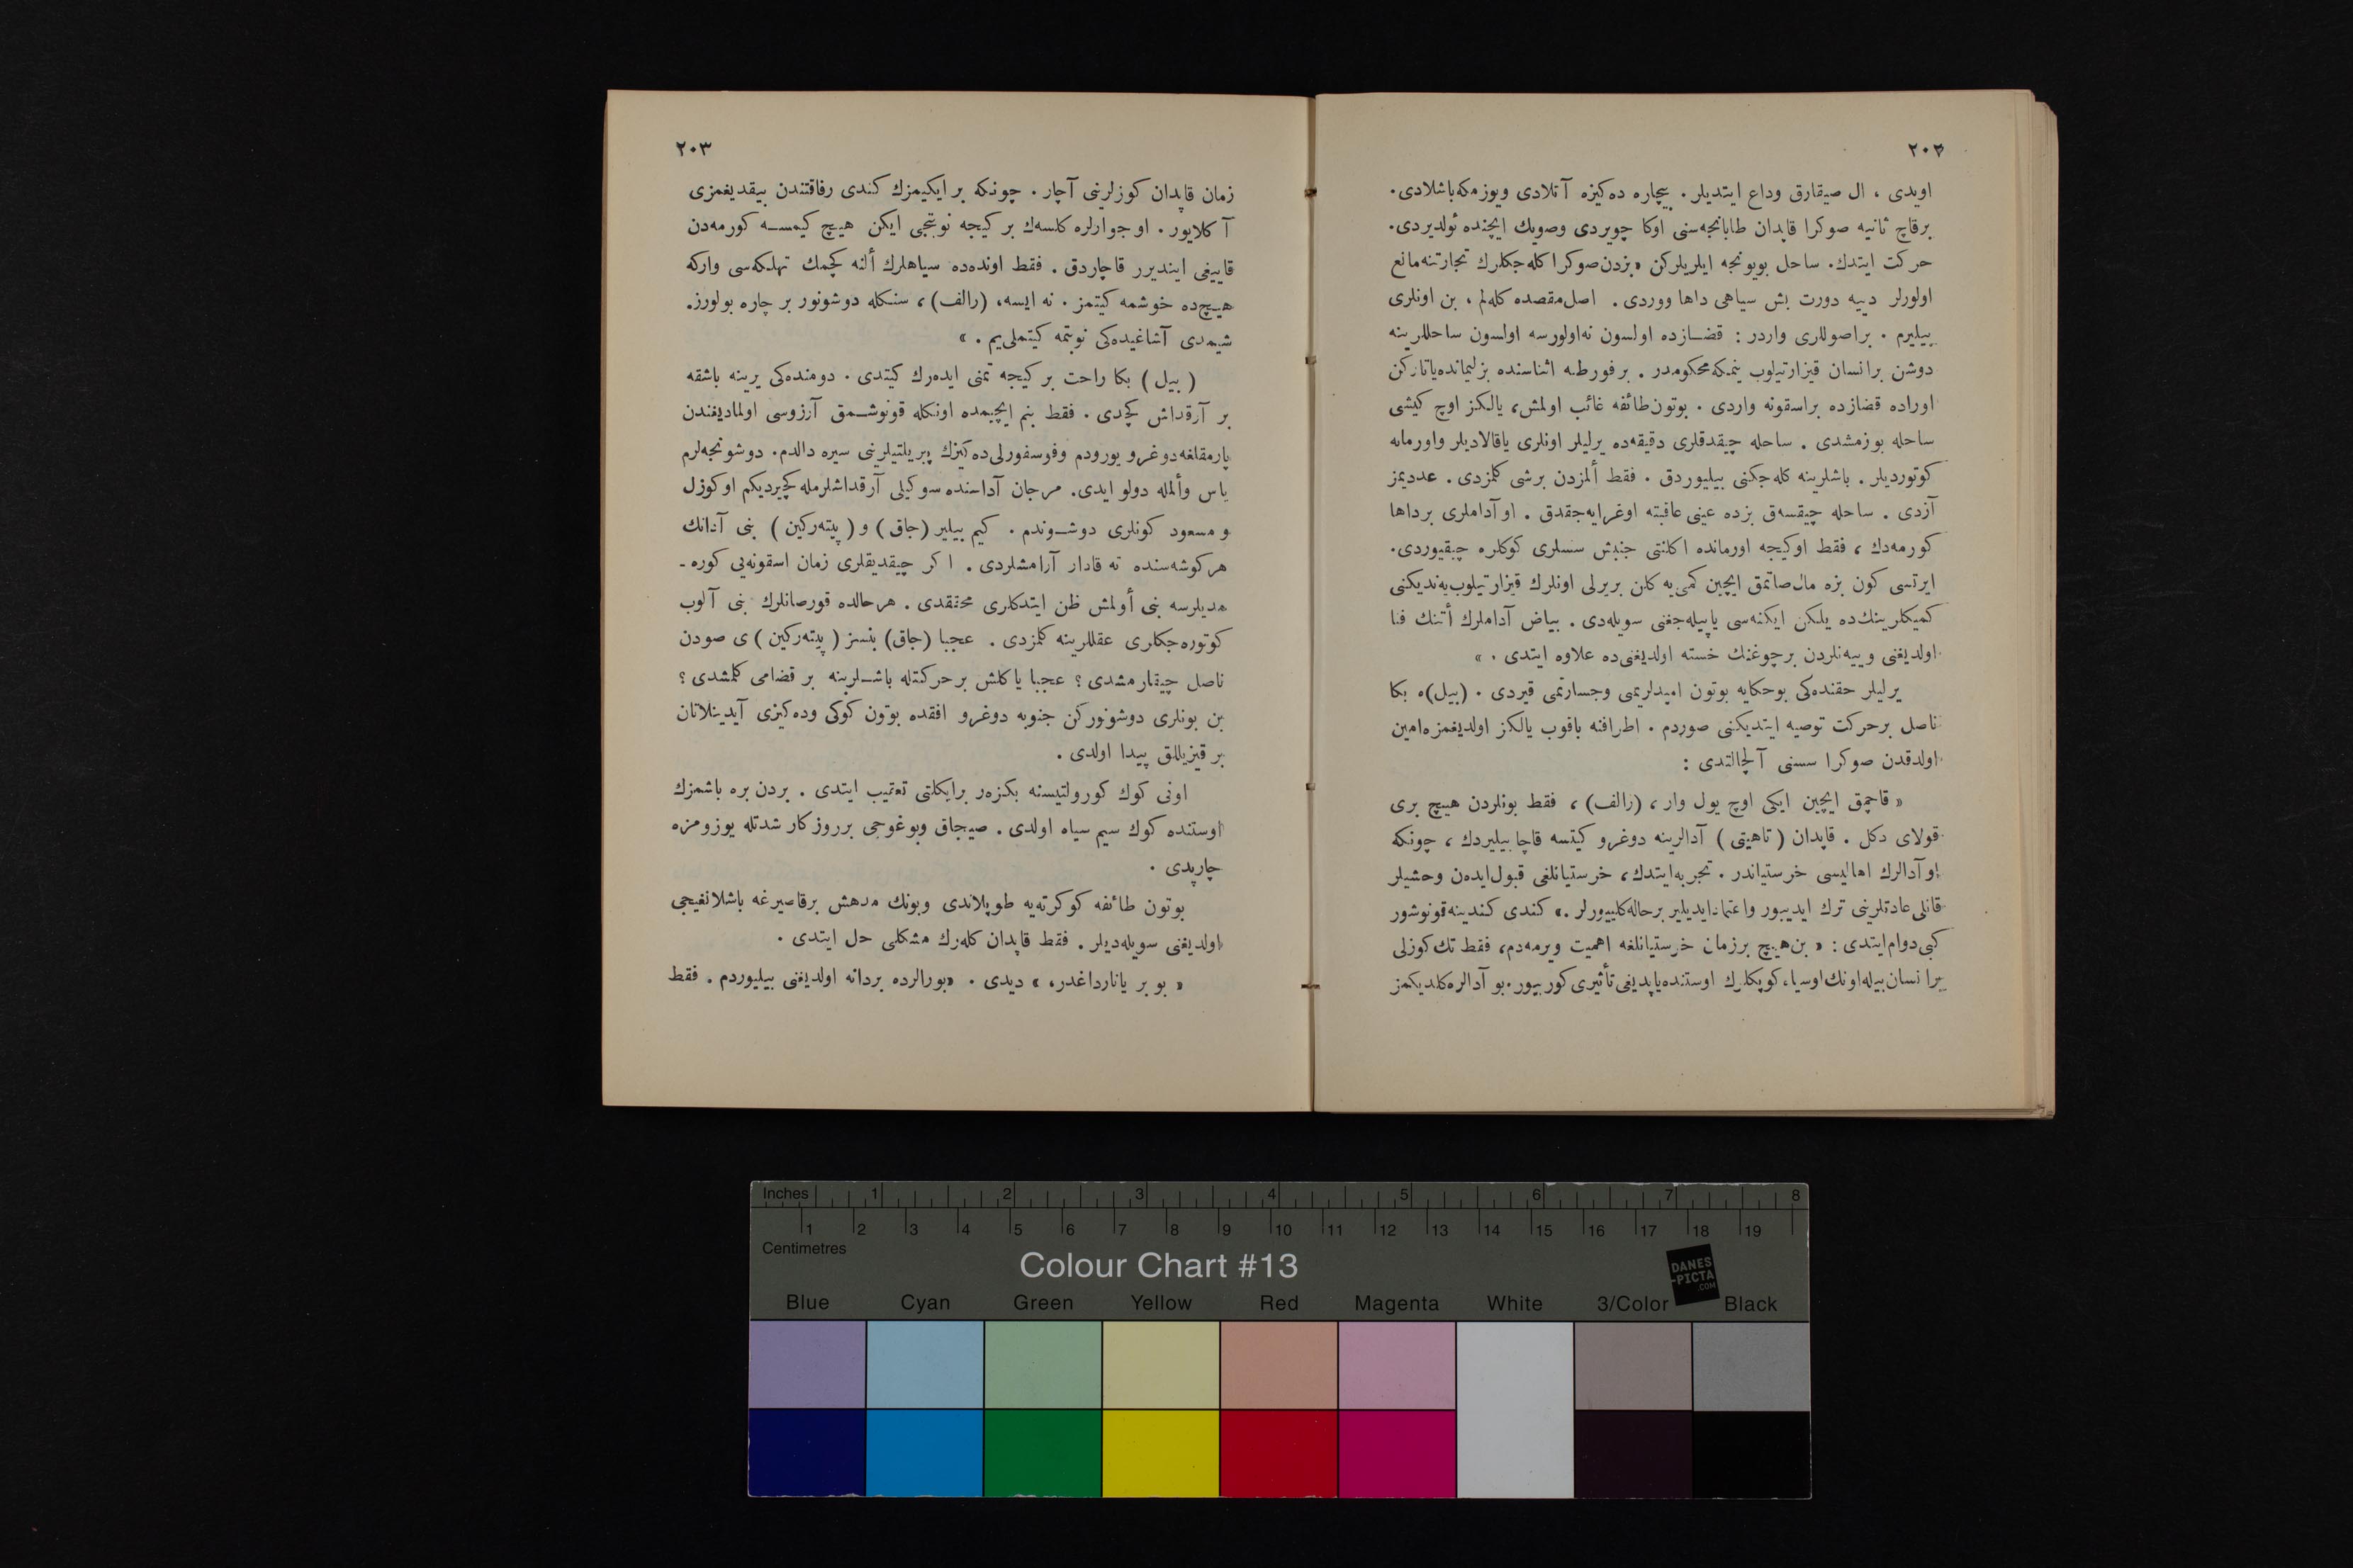 ٢٠٢
اویدی ، ال صیقارق وداع ایتدیلر . بیچاره ده‌کیزه آتلادی ویوزمکه باشلادی .
برقاچ ثانیه صوکرا قاپدان طابانجه‌سنی اوکا چویردی وصویك ایچنده ئولدیردی .
حرکت ایتدك . ساحل بویونجه ایلریلرکن « بزدن صوکرا کله‌جکلرك تجارتنه مانع
اولورلر دییه دورت بش سیاهی داها ووردی . اصل مقصده کله‌لم ، بن اونلری
بیلیرم . براصوللری واردر : قضازده اولسون نه‌اولورسه اولسون ساحللرینه
دوشن برانسان قیزارتیلوب ینمکه محکومدر . برفورطنه اثناسنده بزلیمانده‌یاتارکن
اوراده قضازده براسقونه واردی . بوتون طائفه غائب اولمش، یالکز اوچ کیشی
ساحله یوزمشدی . ساحله چیقدقلری دقیقه‌ده یرلیلر اونلری یاقالادیلر واورمانه
کوتوردیلر . باشلرینه کله‌جکنی بیلیوردق . فقط ألمزدن برشی کلمزدی . عددیمز
آزدی . ساحله چیقسه‌ق بزده عینی عاقبته اوغرایه‌جقدق . اوآداملری برداها
کورمه‌دك ، فقط اوکیجه اورمانده اکلنتی جنبش سسلری کوکلره چیقیوردی .
ایرتسی کون بزه مال‌صاتمق ایچین کمی‌یه کلن بریرلی اونلرك قیزارتیلوب‌یه‌ندیکنی
کمیکلرینك‌ده یلکن ایکنه‌سی یاپیله‌جغنی سویله‌دی . بیاض آداملرك أتنك فنا
اولدیغنی وییه‌نلردن برچوغنك خسته اولدیغنی‌ده علاوه ایتدی . »
یرلیلر حقنده‌کی بوحکایه بوتون امیدلریمی وجسارتمی قیردی . (بیل)ه بکا
ناصل برحرکت توصیه ایتدیکنی صوردم . اطرافنه باقوب یالکز اولدیغمزه‌امین
اولدقدن صوکرا سسنی آلچالتدی :
« قاچمق ایچین ایکی اوچ یول وار ، (رالف) ، فقط بونلردن هیچ بری
قولای دکل . قاپدان ( تاهیتی ) آدالرینه دوغرو کیتسه قاچابیلیردك ، چونکه
اوآدالرك اهالیسی خرستیاندر . تجربه‌ایتدك ، خرستیانلغی قبول‌ایده‌ن وحشیلر
قانلی عادتلرینی ترك ایدییور واعتمادایدیلیر برحاله‌کلییورلر .» کندی کندینه‌قونوشور
کبی‌دوام‌ایتدی : « بن‌هیچ برزمان خرستیانلغه اهمیت ویرمه‌دم، فقط تك کوزلی
برانسان‌بیله‌اونك‌اوسیاه‌کوپکلرك اوستنده‌یاپدیغی تأثیری کوریور. بو آدالره‌کلدیکمز
٢٠٣
زمان قاپدان کوزلرینی آچار . چونکه بر ایکیمزك کندی رفاقتندن بیقدیغمزی
آکلایور . اوجوارلره کلسه‌ك بر کیجه نوبتجی ایکن هیچ کیمسه کورمه‌دن
قاییغی ایندیرر قاچاردق . فقط اونده‌ده سیاهلرك ألنه کچمك تهلکه‌سی وارکه
هیچ‌ده خوشمه کیتمز . نه ایسه، (رالف) ، سنکله دوشونور بر چاره بولورز.
شیمدی آشاغیده‌کی نوبتمه کیتملی‌یم . »
( بیل ) بکا راحت بر کیجه تمنی ایده‌رك کیتدی . دومنده‌کی یرینه باشقه
بر آرقداش کچدی . فقط بنم ایچیمده اونکله قونوشمق آرزوسی اولمادیغندن
پارمقلغه‌دوغرو یورودم وفوسفورلی‌ده‌کیزك پیریلتیلرینی سیره دالدم. دوشونجه‌لرم
یاس وألمله دولو ایدی. مرجان آداسنده سوکیلی آرقداشلرمله کچیردیکم اوکوزل
و مسعود کونلری دوشوندم . کیم بیلیر (جاق) و ( پیته‌رکین ) بنی آدانك
هرکوشه‌سنده نه قادار آرامشلردی . اکر چیقدیقلری زمان اسقونه‌یی کوره-
مدیلرسه بنی أولمش ظن ایتدکلری محققدی . هرحالده قورصانلرك بنی آلوب
کوتوره‌جکلری عقللرینه کلمزدی . عجبا (جاق) بنسز ( پیته‌رکین ) ی صودن
ناصل چیقارمشدی ؟ عجبا یاکلش برحرکتله باشلرینه بر قضامی کلمشدی ؟
بن بونلری دوشونورکن جنوبه دوغرو افقده بوتون کوکی وده‌کیزی آیدینلاتان
بر قیزیللق پیدا اولدی .
اونی کوك کورولتیسنه بکزه‌ر برایکلتی تعقیب ایتدی . بردن بره باشمزك
اوستنده کوك سیم سیاه اولدی . صیجاق وبوغوجی برروزکار شدتله یوزومزه
چارپدی .
بوتون طائفه کوکرته‌یه طوپلاندی وبونك مدهش برقاصیرغه باشلانغیجی
اولدیغنی سویله‌دیلر . فقط قاپدان کله‌رك مشکلی حل ایتدی .
« بو بر یانارداغدر، » دیدی . «بورالرده بردانه اولدیغنی بیلیوردم . فقط
Inches 1 2 3 4 5 6 7 8
1 2 3 4 5 6 7 8 9 10 11 12 13 14 15 16 17 18 19
Centimetres
Colour Chart #13
DANES
-PICTA
.COM
Blue Cyan Green Yellow Red Magenta White 3/Color Black